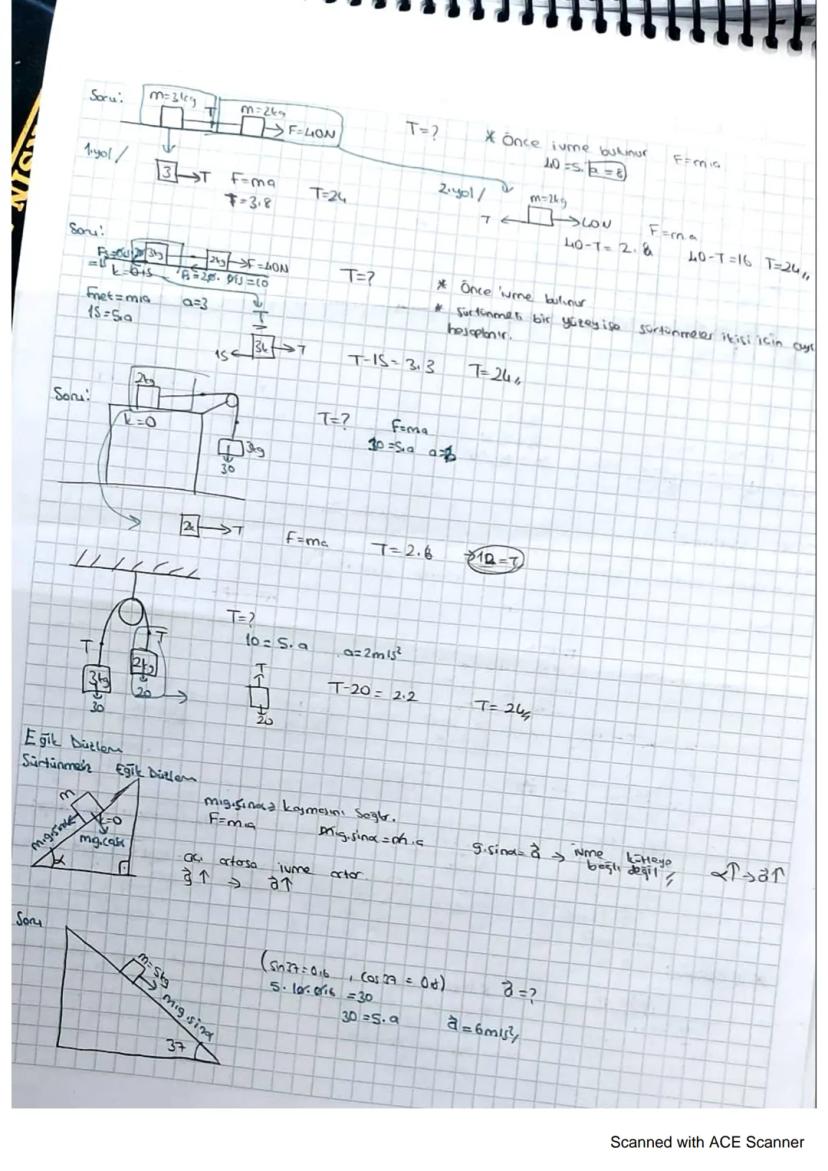 Soru: m=3kg T m=2kg F=40N T=? * Önce ivme bulunur F=m.a
40=5.a a=8
1.yol/ 3 T F=ma T=24 2.yol/ m=2kg
T=3.8 T 40N F=m.a
40-T=2.8 40-T=16 T=24
Soru:
3kg 2kg F=40N T=? * Önce ivme bulunur
k=0,5 * Sürtünmeli bir yüzeyse sürtünmeler ikisi için ayrı
hesaplanır.
Fnet=m.a a=3
15=5.a
T
15 3k T T-15=3.3 T=24
Soru: 2kg
k=0 T=? F=ma
3kg 30=5.a
30
2k T F=ma T=2.6 12=T
T=?
10=5.a a=2m/s²
T T
3kg 2kg T T-20=2.2 T=24
30 20 20
Eğik Düzlem
Sürtünmesiz Eğik Düzlem
m m.g.sinα kaymasını sağlar.
k=0 F=m.a m.g.sinα=m.a g.sinα=a → ivme kütleye
bağlı değil α↑→a↑
m.g.sinα mg.cosα
α açı artarsa ivme artar.
g↑ → a↑
Soru
m=5kg (sin37=0,6 , cos37=0,8) a=?
m.g.sinα 5.10.0,6=30
30=5.a a=6m/s²
37
Scanned with ACE Scanner